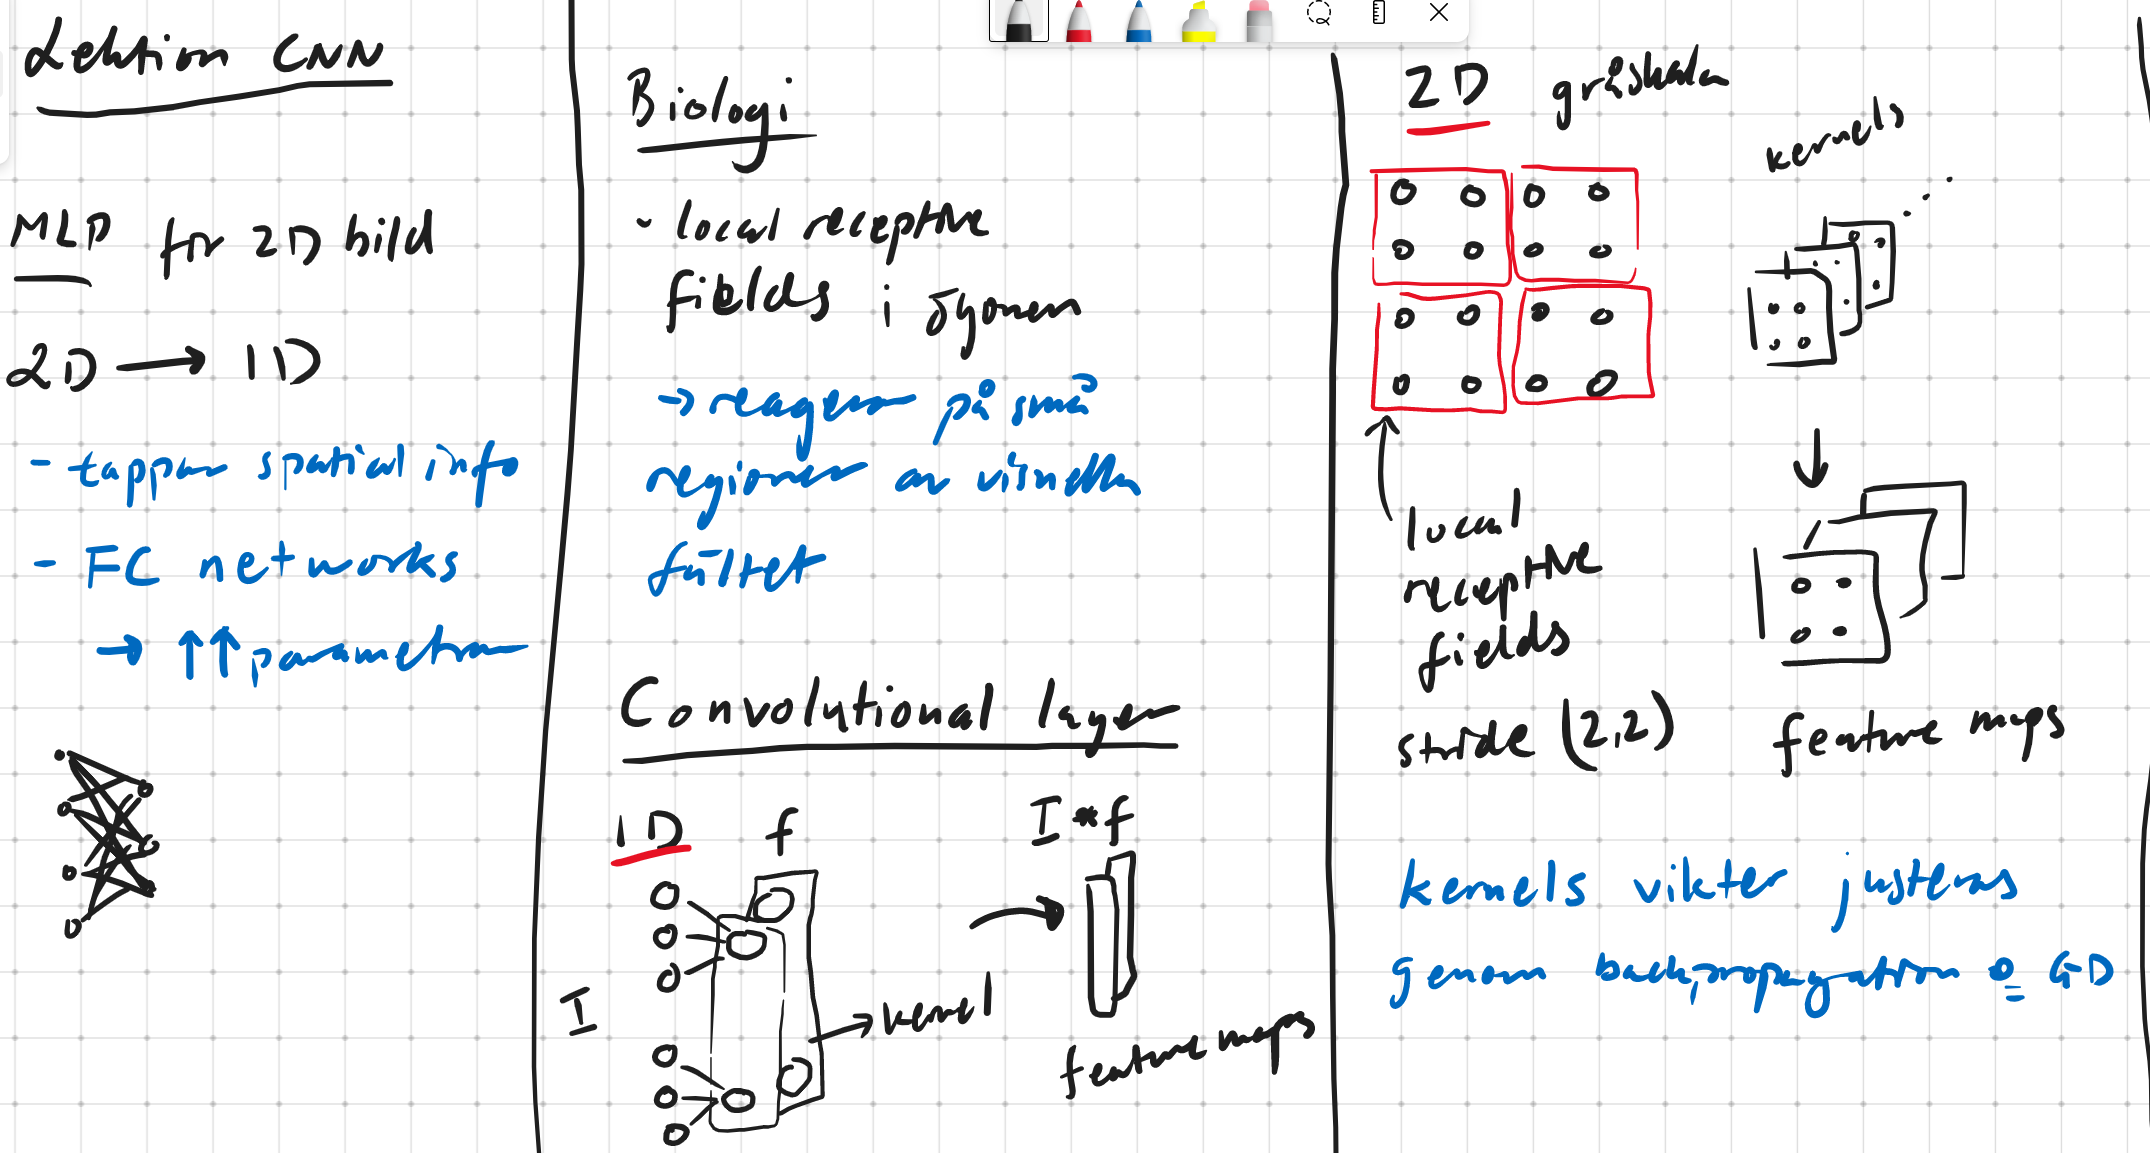 Lektion CNN
MLP för 2D bild
2D → 1D
- tappar spatial info
- FC networks
→ ↑↑ parametrar
Biologi
- local receptive
fields i ögonen
→ reagerar på små
regioner av visuella
fältet
Convolutional layer
1D f I * f
I
→ kernel
feature maps
2D gråskala
kernels
local
receptive
fields
stride (2,2)
feature maps
kernels vikter justeras
genom backpropagation o GD